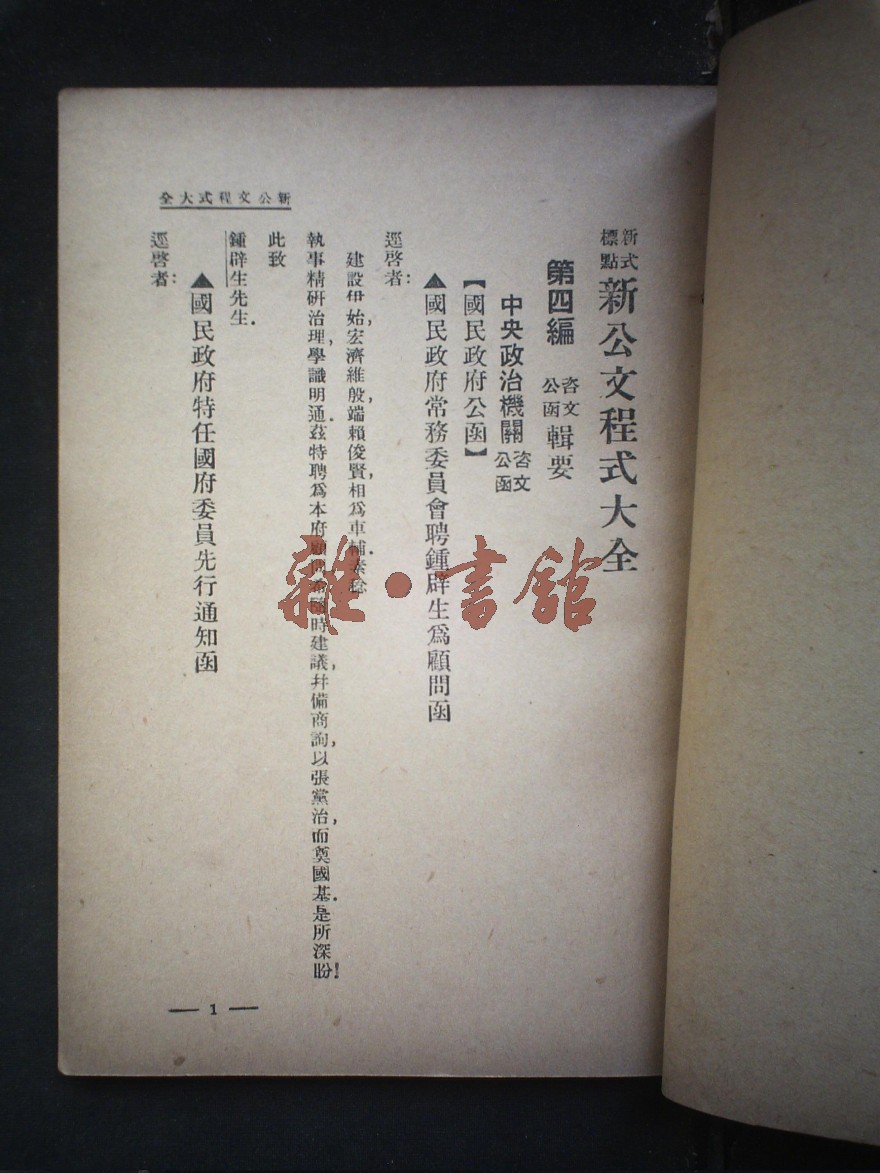 新式標點 新公文程式大全
第四編 咨文公函 輯要
中央政治機關 咨文公函
【國民政府公函】
▲國民政府常務委員會聘鍾辟生爲顧問函
逕啓者:
建設伊始,宏濟維殷,端賴俊賢,相爲車輔.素稔
執事精研治理,學識明通.茲特聘爲本府顧問時建議,幷備商詢,以張黨治,而奠國基.是所深盼!
此致
鍾辟生先生.
▲國民政府特任國府委員先行通知函
逕啓者:
新公文程式大全
— 1 —
雜·書館